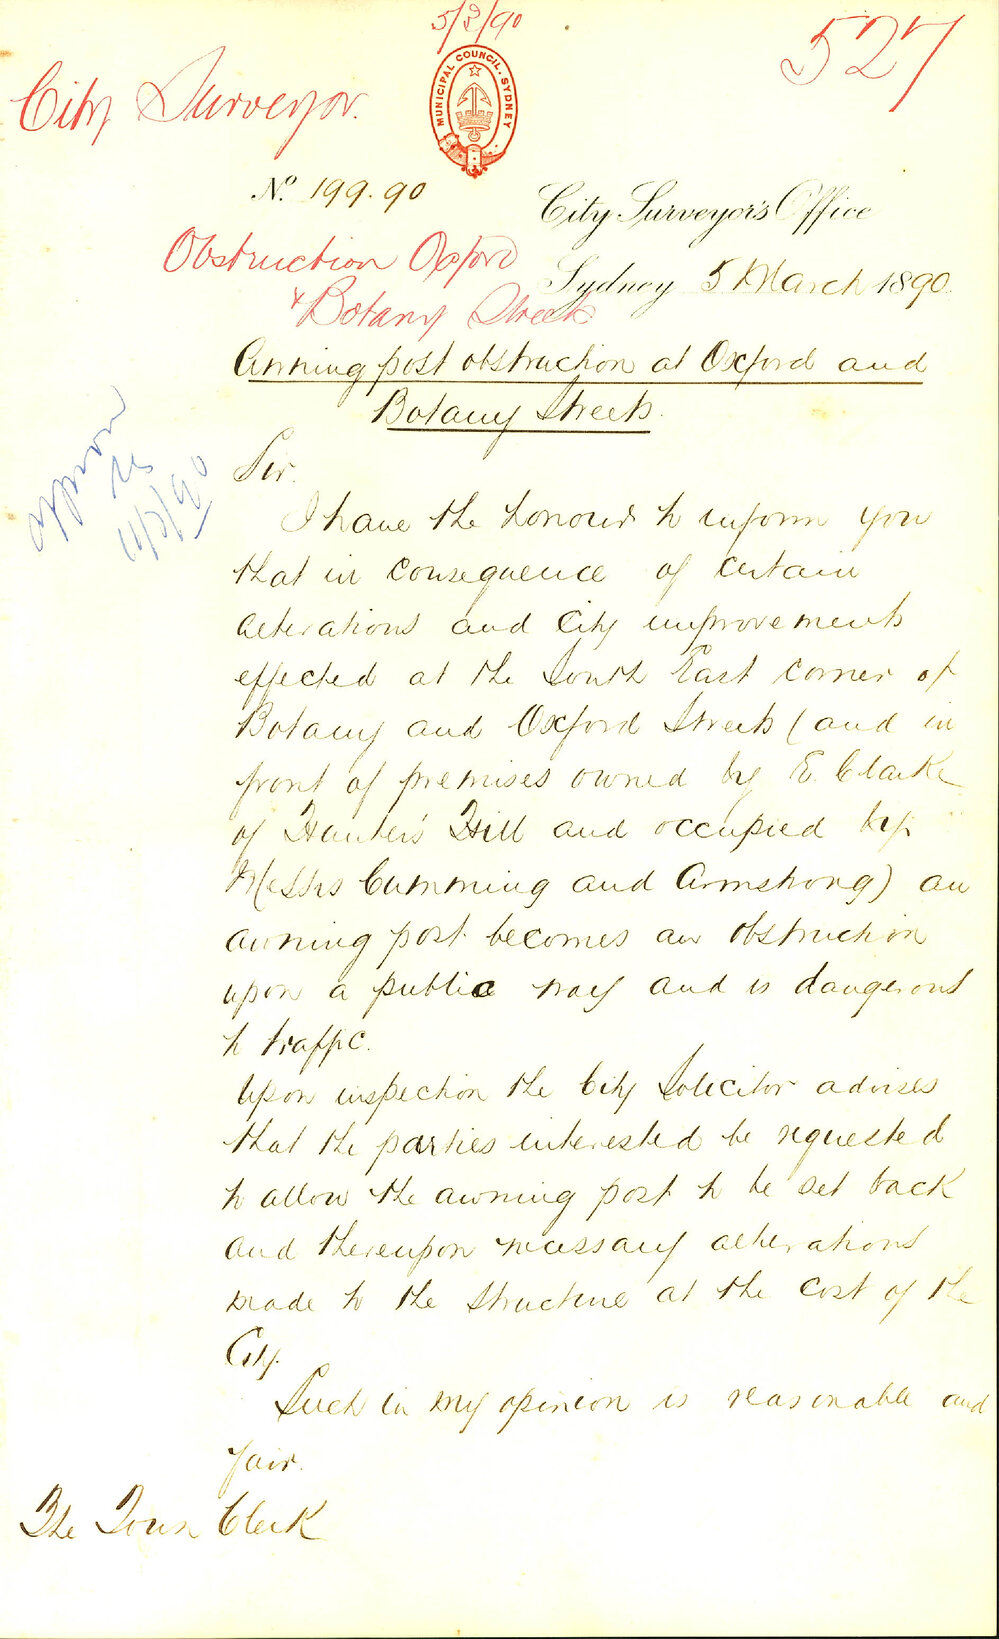 5/3/90
527
City Surveyor.
MUNICIPAL COUNCIL. SYDNEY
No. 199.90
City Surveyor's Office
Obstruction Oxford
Sydney 5 March 1890.
& Botany Streets
Awning post obstruction at Oxford and
Botany Streets.
approv
11/3/90
Sir.
I have the honour to inform you
that in consequence of certain
alterations and City improvements
effected at the South East corner of
Botany and Oxford Streets (and in
front of premises owned by E. Clarke
of Hunter's Hill and occupied by
Messrs Cumming and Armstrong) an
awning post becomes an obstruction
upon a public way and is dangerous
to traffic.
Upon inspection the City Solicitor advises
that the parties interested be requested
to allow the awning post to be set back
and thereupon necessary alterations
made to the structure at the cost of the
City.
Such in my opinion is reasonable and
fair.
The Town Clerk